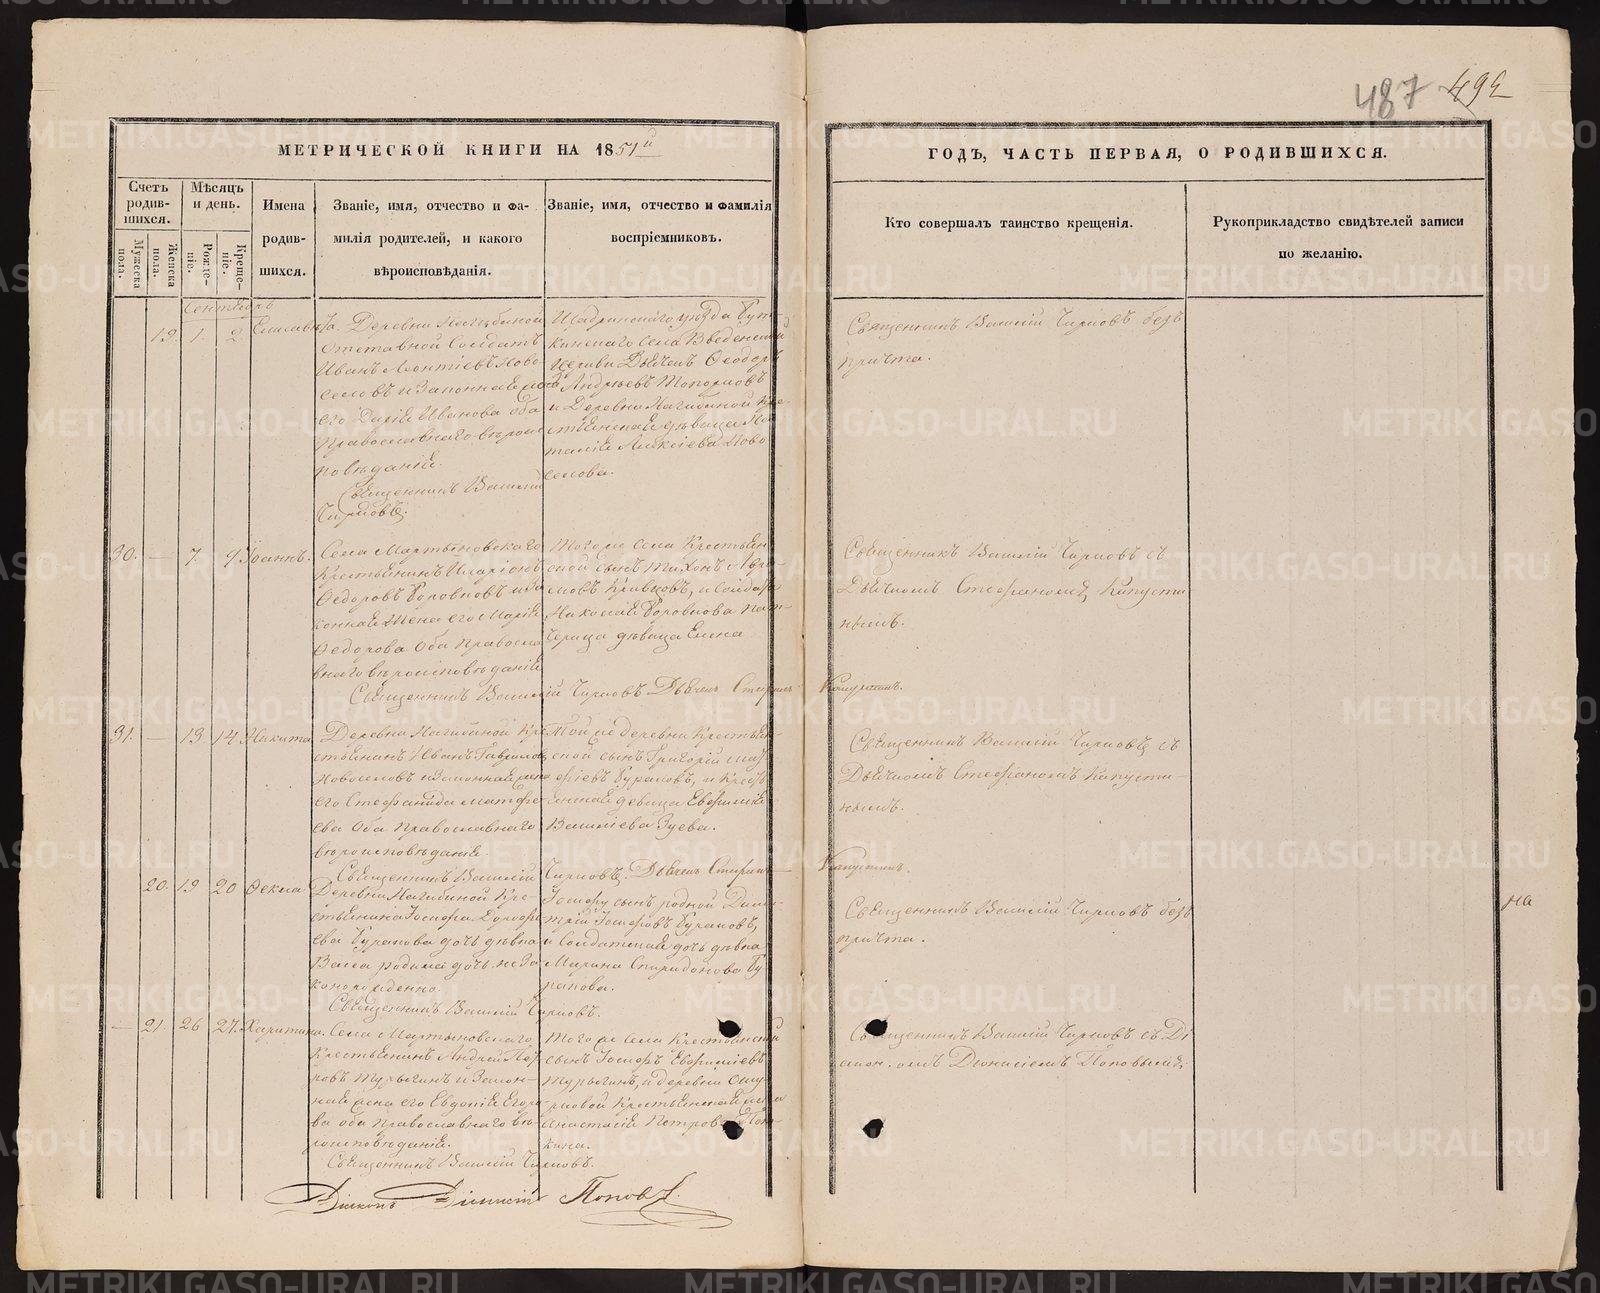 487 492
МЕТРИЧЕСКОЙ КНИГИ НА 1851й
ГОДЪ, ЧАСТЬ ПЕРВАЯ, О РОДИВШИХСЯ.
Счетъ родив-шихся.
Мужеска пола.
Женска пола.
Мѣсяцъ и день.
Рожде-ніе.
Креще-ніе.
Имена
родив-
шихся.
Званіе, имя, отчество и фа-
милія родителей, и какого
вѣроисповѣданія.
Званіе, имя, отчество и фамилія
воспріемниковъ.
Кто совершалъ таинство крещенія.
Рукоприкладство свидѣтелей записи
по желанію.
Сентябрь
19. 1. 2 Елисавета
Деревни Нагибиной
Отставной Солдатъ
Иванъ Леонтіевъ Ново
селовъ и Законная жена
его Дарія Иванова оба
Православнаго вѣроис
повѣданія.
Священникъ Василій
Чирковъ.
Шадринскаго уѣзда Бут-
кинскаго села Введенской
Церкви Дьячекъ Феодоръ
Андреевъ Топорковъ
и Деревни Нагибиной Кре-
стьянская дѣвица На
талія Алексіева Ново
селова.
Священникъ Василій Чирковъ безъ
причта.
30. — 7 9 Іоаннъ.
Села Мартыновскаго
Крестьянинъ Иларіонъ
Федоровъ Боровковъ и За
конная Жена его Марія
Федорова Оба Правосла
внаго вѣроисповѣданія
Священникъ Василій Чирковъ Дьячекъ Стефанъ Капустинъ.
Того же села Крестьян
ской сынъ Тихонъ
Кривцовъ, и Солдата
Николая Боровкова пад-
черица дѣвица Елена
Священникъ Василій Чирковъ съ
Дьячкомъ Стефаномъ Капусти
нымъ.
31. — 13 14 Никита
Деревни Нагибиной Кре
стьянинъ Иванъ Гавриловъ
Новоселовъ и Законная жена
его Стефанида Матфе
ева Оба Православнаго
вѣроисповѣданія
Священникъ Василій Чирковъ. Дьячекъ Стефанъ Капустинъ.
Той же деревни Крестьян-
ской сынъ Григорій Мат
фіевъ Бураковъ, и Крест
янская девица Евфимія
Васильева Зуева.
Священникъ Василій Чирковъ съ
Дьячкомъ Стефаномъ Капусти-
нымъ.
20. 19 20 Фекла
Деревни Нагибиной Кре
стьянина Іосифа Дорофе
ева Буракова дочь дѣвка
Васса родила дочь неза
конорожденно.
Священникъ Василій Чирковъ.
Іосифу сынъ родной Дими-
трій Іосифовъ Бураковъ,
и Солдатская дочь дѣвка
Марина Спиридонова Бу
ракова.
Священникъ Василій Чирковъ безъ
причта.
на
— 21. 26 27. Харитина.
Села Мартыновскаго
Крестьянинъ Андрей Пет
ровъ Турыгинъ и Закон-
ная жена его Евдокія Егоро-
ва оба Православнаго вѣ-
роисповѣданія.
Священникъ Василій Чирковъ.
Того же села Крестьянской
сынъ Іосифъ Евфиміевъ
Турыгинъ, и деревни
Крестьянская жена
Анастасія Петрова
кина.
Священникъ Василій Чирковъ съ Ді
акономъ Діонисіемъ Поповымъ.
Діаконъ Діонисій Поповъ.
METRIKI.GASO-URAL.RU